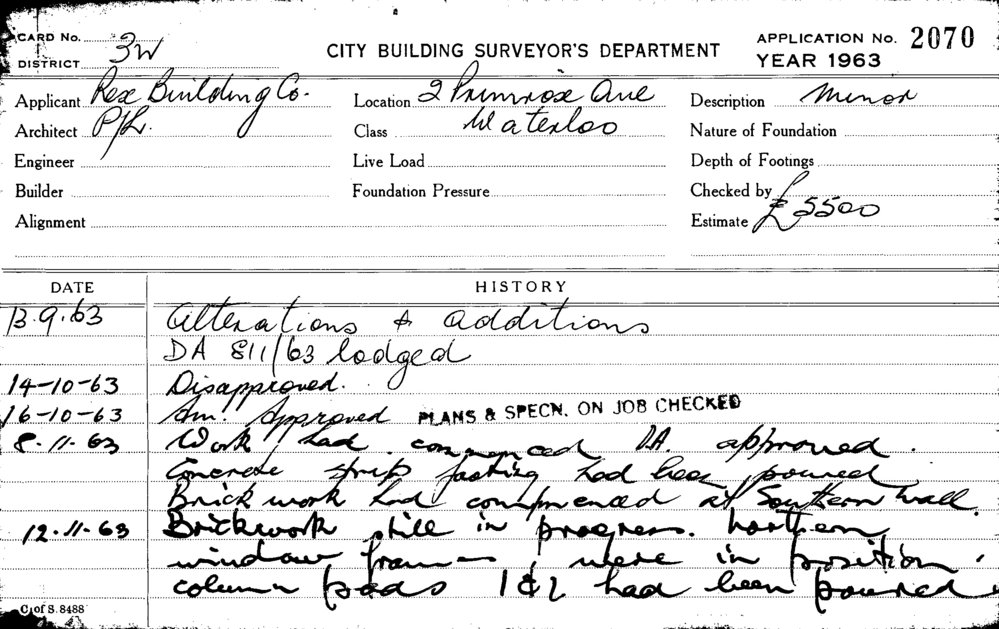 CARD No.
DISTRICT 3W
CITY BUILDING SURVEYOR'S DEPARTMENT
APPLICATION No. 2070
YEAR 1963
Applicant Rex Building Co.
Location 2 Primrose Ave
Description Minor
Architect P/L.
Class Waterloo
Nature of Foundation
Engineer
Live Load
Depth of Footings
Builder
Foundation Pressure
Checked by
Alignment
Estimate £5500
DATE HISTORY
13.9.63 Alterations & additions
DA 811/63 lodged
14-10-63 Disapproved.
16-10-63 Am. Approved PLANS & SPECN. ON JOB CHECKED
8.11.63 Work had commenced DA. approved.
Concrete strip footing had been poured
Brick work had commenced at Southern Wall.
12.11.63 Brickwork still in progress. Northern
window frames were in position.
column pads 1&2 had been poured
C. of S. 8488